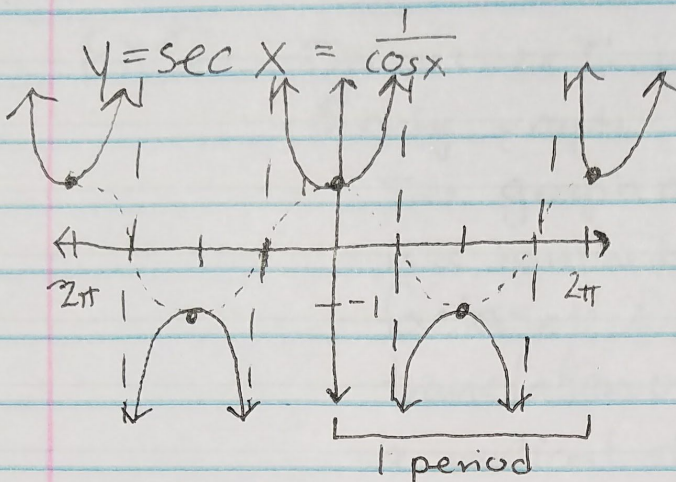 y = sec x = 1/cosx
2π
2π
-1
1 period